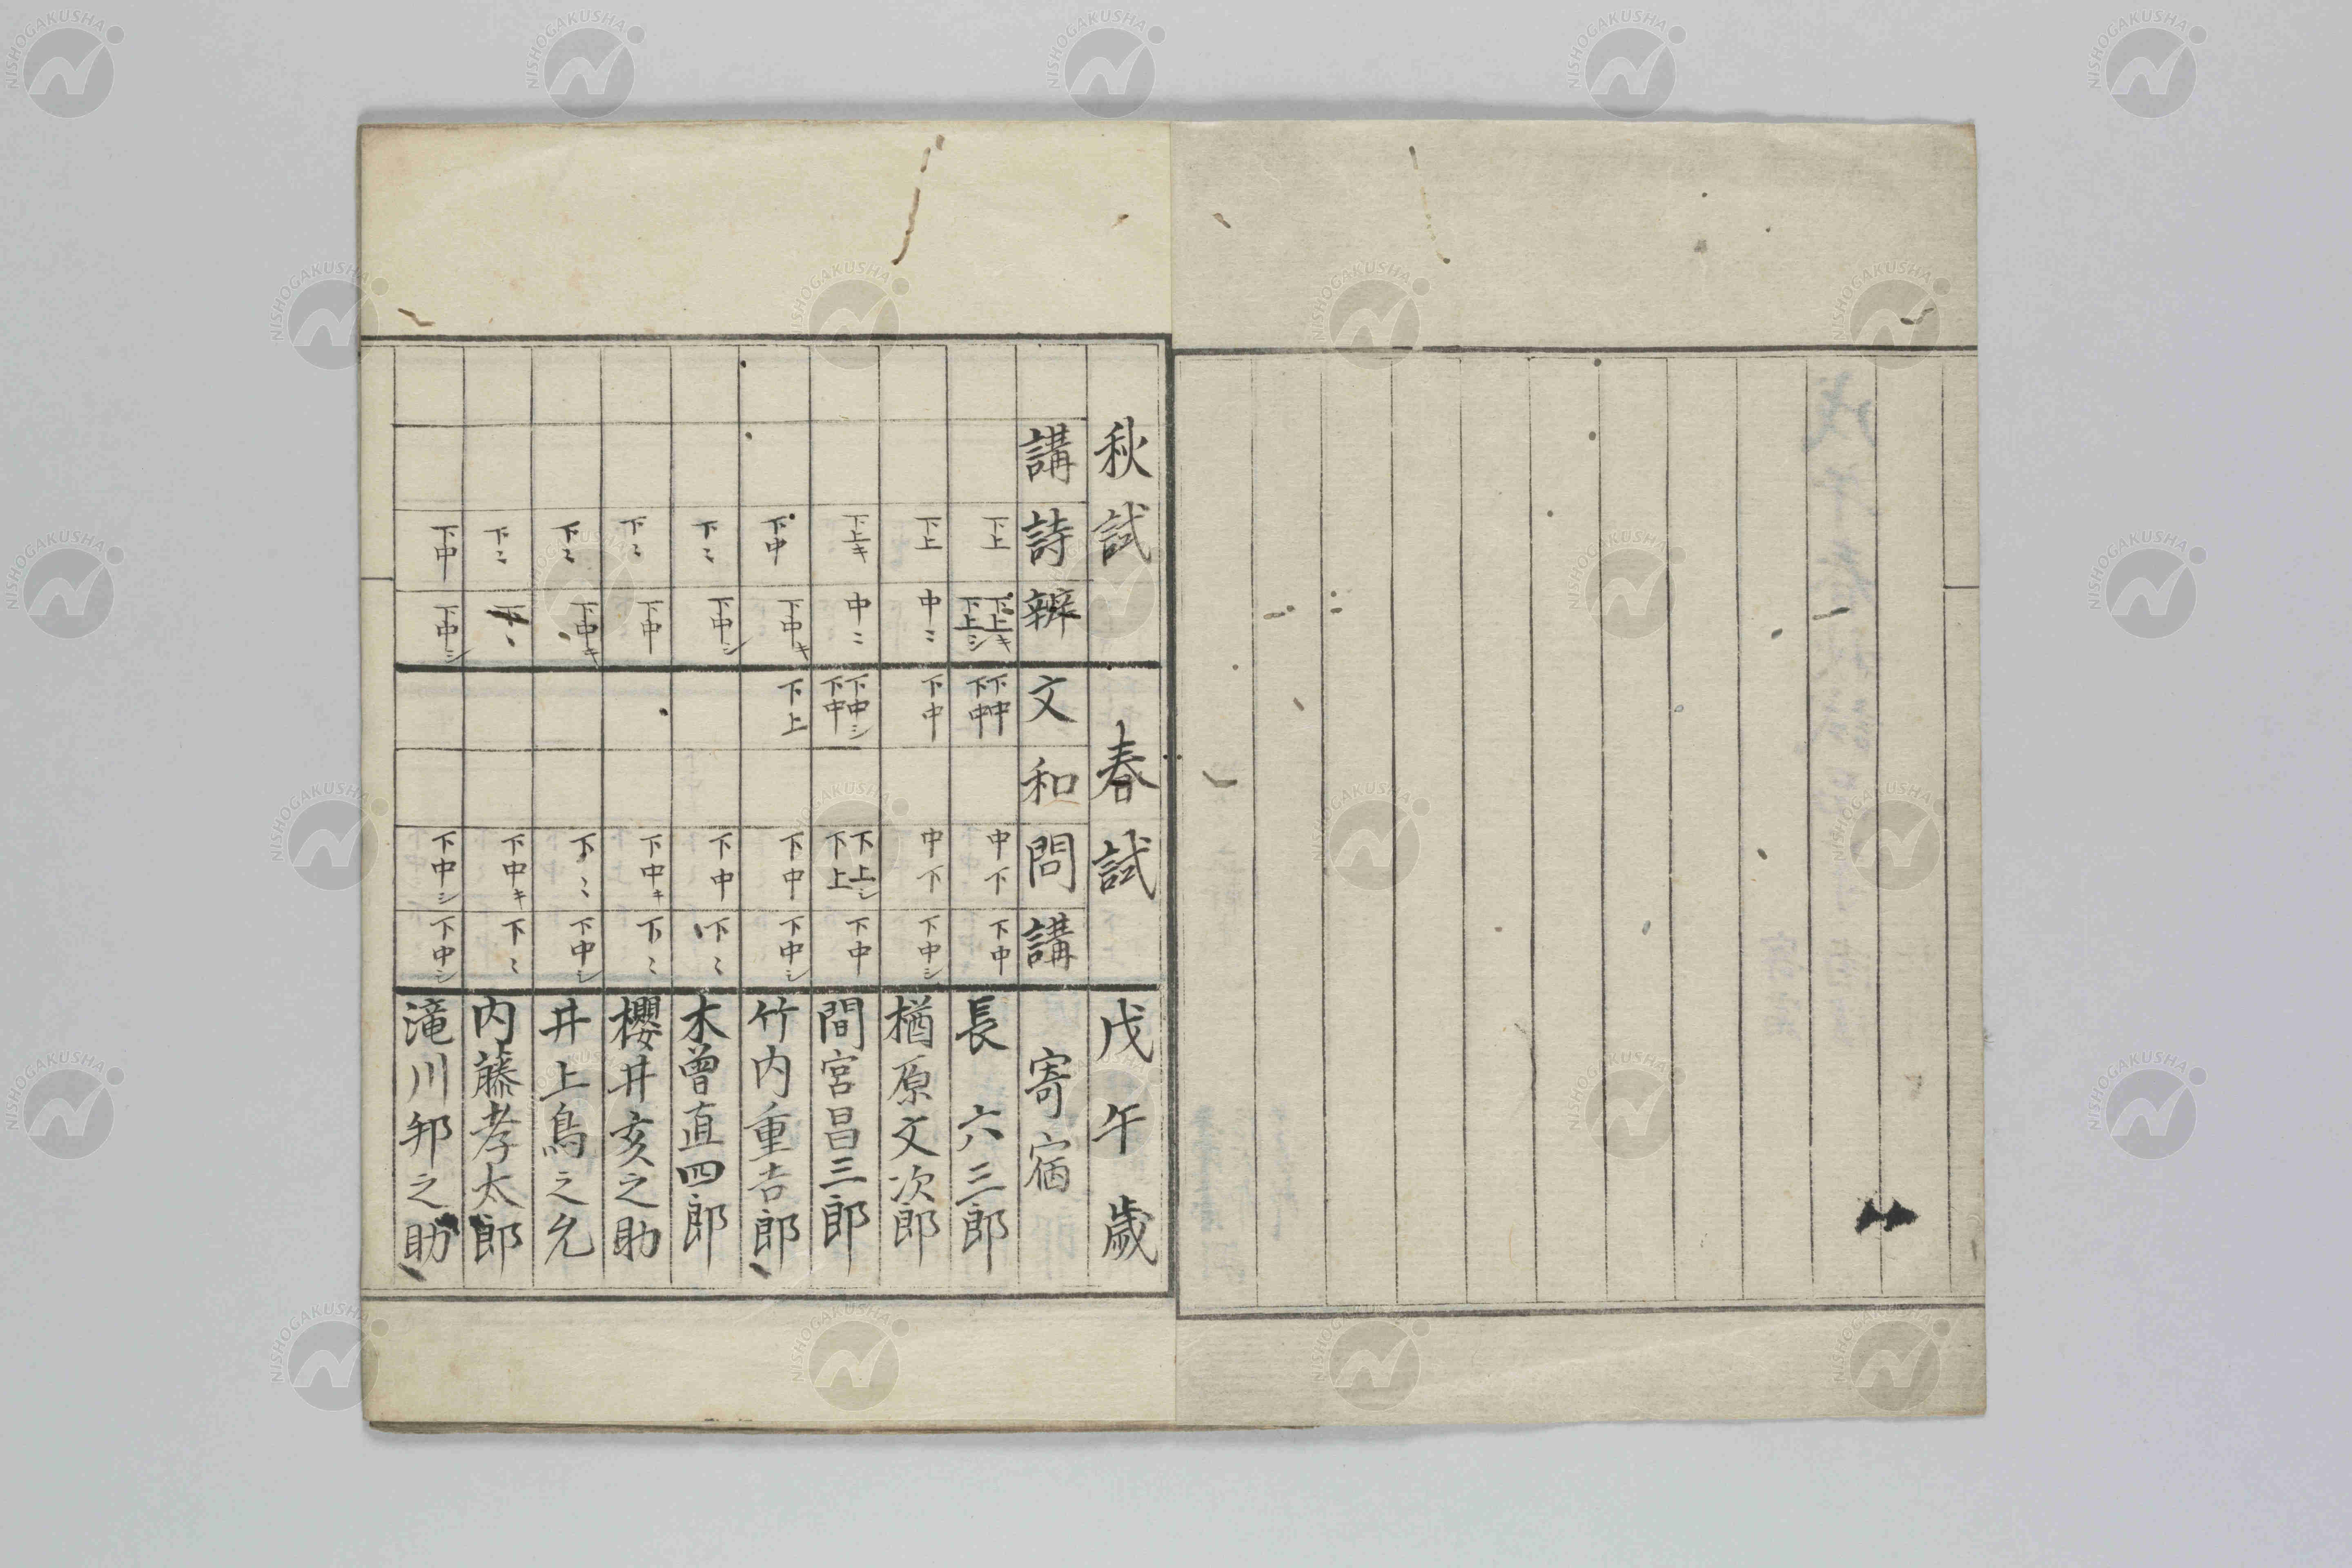 秋試 春試 戊午歳
講 詩 辨 文 和 問 講 寄宿
下上 下上キ 下上シ 下中 下中 中下 下中 長 六三郎
下上 中ミ 下中 中下 下中シ 楢原文次郎
下上キ 中ミ 下中シ 下中 下上シ 下上 下中 間宮昌三郎
下中 下中キ 下上 下中 下中シ 竹内重吉郎
下ミ 下中シ 下中 下ミ 木曽直四郎
下ミ 下中 下中キ 下ミ 櫻井亥之助
下ミ 下中キ 下ミ 下中シ 井上鳥之允
下ミ 下中キ 下ミ 内藤孝太郎
下中 下中シ 下中シ 下中シ 滝川邦之助
NISHOGAKUSHA